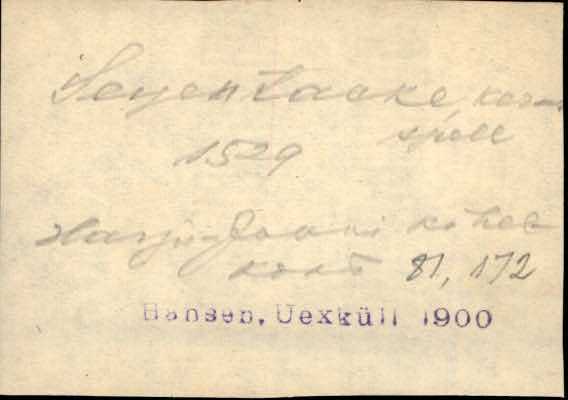 Seyentacke, kers-
spell
1529
Harju-Jaani kihel
kond 81, 172
Hansen, Uexküll 1900